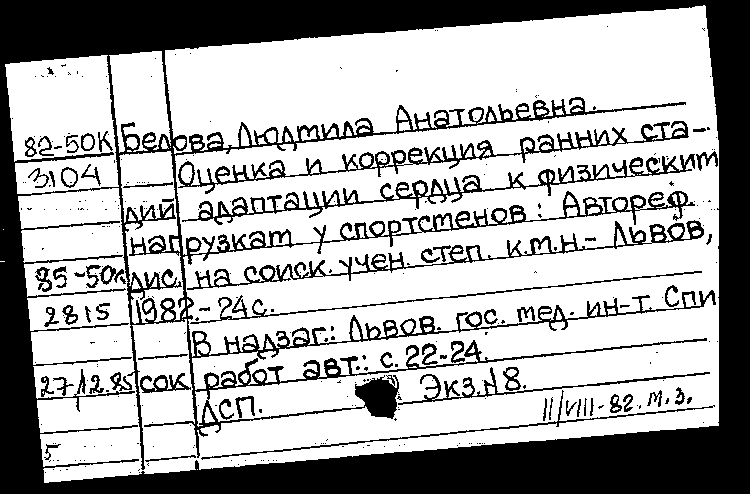 82-50К Белова, Людмила Анатольевна.
3104 Оценка и коррекция ранних ста-
дий адаптации сердца к физическим
нагрузкам у спортсменов: Автореф.
85-50к дис. на соиск. учен. степ. к.м.н.- Львов,
2815 1982.- 24с.
В надзаг.: Львов. гос. мед. ин-т. Спи
27/12.85 сок работ авт.: с. 22-24.
ДСП. Экз.№8.
II/VIII-82. М.З.
5